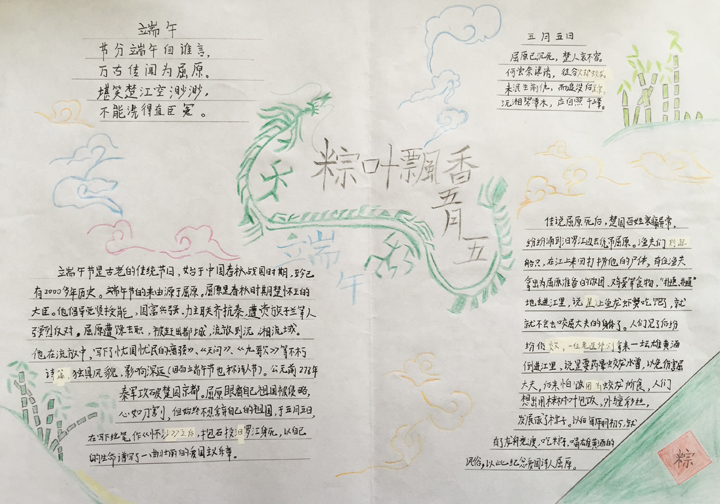 端午
节分端午自谁言,
万古传闻为屈原。
堪笑楚江空渺渺,
不能洗得直臣冤。
五月五日
屈原已沉死，楚人哀不容。
何尝奈谗谤，
未泯生前恨，而追没后
沅湘碧潭水，应自照千峰。
粽叶飘香
五月五
端午
端午节是古老的传统节日，始于中国春秋战国时期，至今已
有2000多年历史。端午节的来由源于屈原，屈原是春秋时期楚怀王的
大臣。他倡导举贤授能，富国强兵，力主联齐抗秦，遭贵族子兰等人
强烈反对。屈原遭馋去职，被赶出都城，流放到沅、湘流域。
他在流放中，写下了忧国忧民的《离骚》、《天问》、《九歌》等不朽
诗，独具风貌，影响深远（因而端午节也称诗人节）。公元前278年
秦军攻破楚国京都。屈原眼看自己祖国被侵略，
心如刀割，但始终不忍舍弃自己的祖国，于五月五日
在写下绝笔作《怀沙》之后，抱石投汨罗江身死，以自己
的生命谱写了一曲壮丽的爱国主义乐章。
传说屈原死后，楚国百姓哀痛异常，
纷纷涌到汨罗江边去凭吊屈原。渔夫们
船只，在江上来回打捞他的尸体。有位渔夫
拿出为屈原准备的饭团、鸡蛋等食物，“扑通、扑通”
地丢进江里，说是让鱼龙虾蟹吃饱了，就
就不会去咬屈大夫的身体了。人们见了后纷
纷仿效，一位老医师则拿来一坛雄黄酒
倒进江里，说是要药晕蛟龙水兽，以免伤害屈
大夫，后来怕饭团为蛟龙所食，人们
想出用楝树叶包饭，外缠彩丝，
发展成粽子。以后每年的初五，就
有了龙舟竞渡、吃粽子、喝雄黄酒的
风俗，以此纪念爱国诗人屈原。
粽